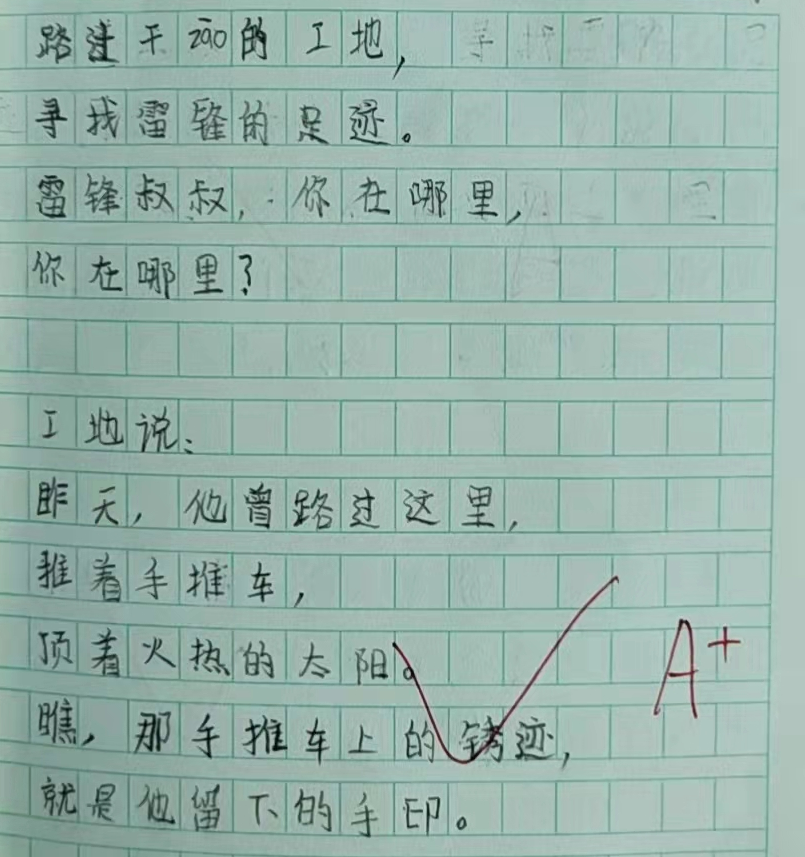 路过干zào的工地，
寻找雷锋的足迹。
雷锋叔叔，你在哪里，
你在哪里？
工地说：
昨天，他曾路过这里，
推着手推车，
顶着火热的太阳。
瞧，那手推车上的锈迹，
就是他留下的手印。
A+